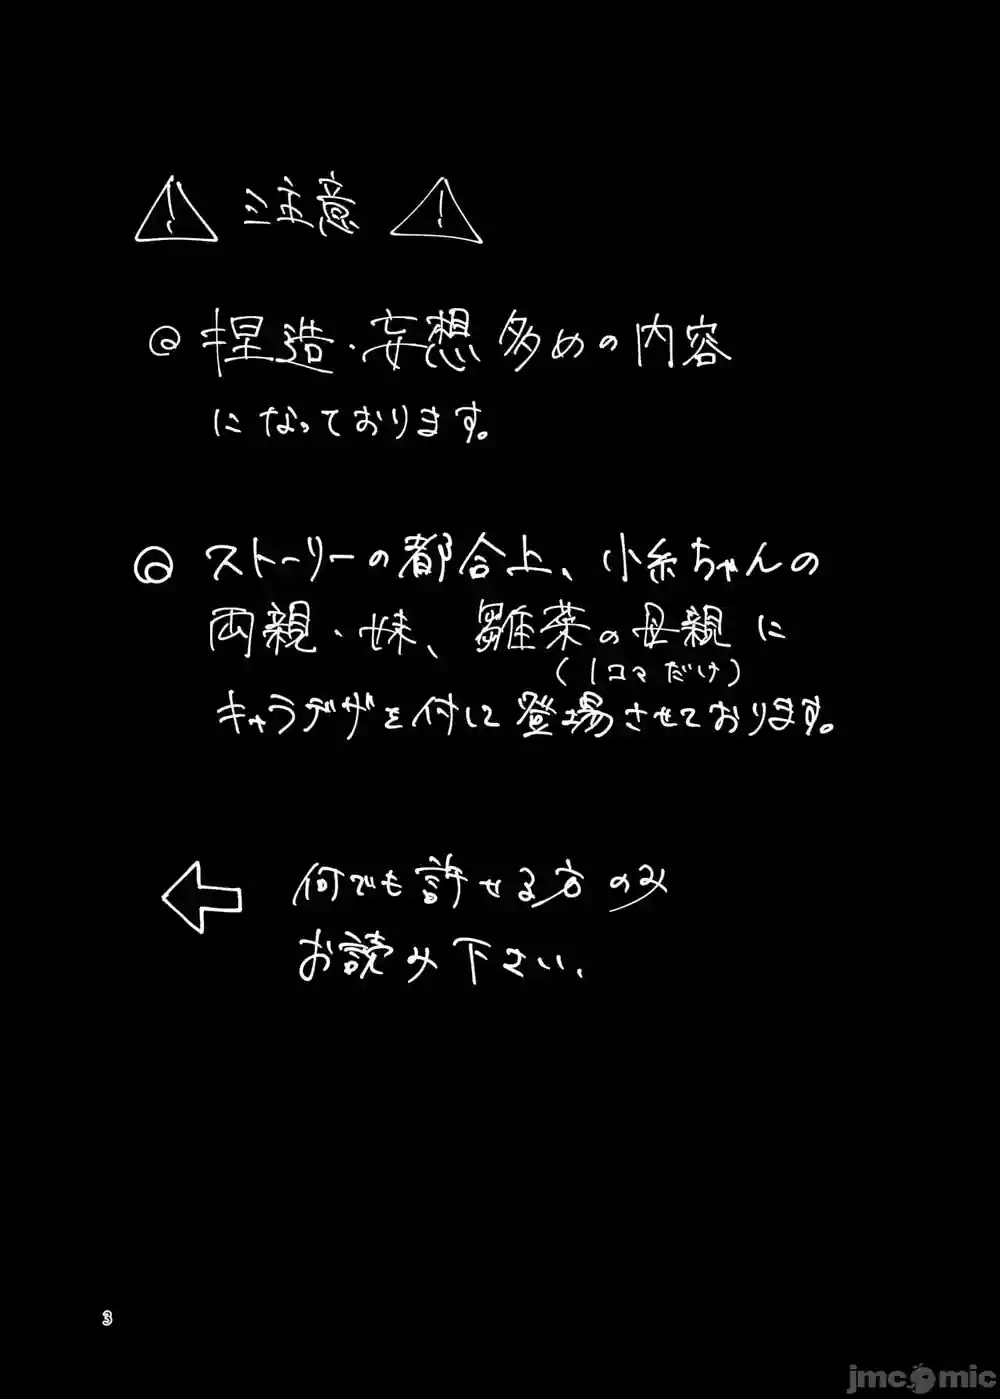 ⚠ ご注意 ⚠
◎ 捏造・妄想 多めの内容
になっております。
◎ ストーリーの都合上、小糸ちゃんの
両親・妹、雛菜の母親に
(1コマだけ)
キャラデザを付けて登場させております。
何でも許せる方のみ
お読み下さい、
3
jmcomic